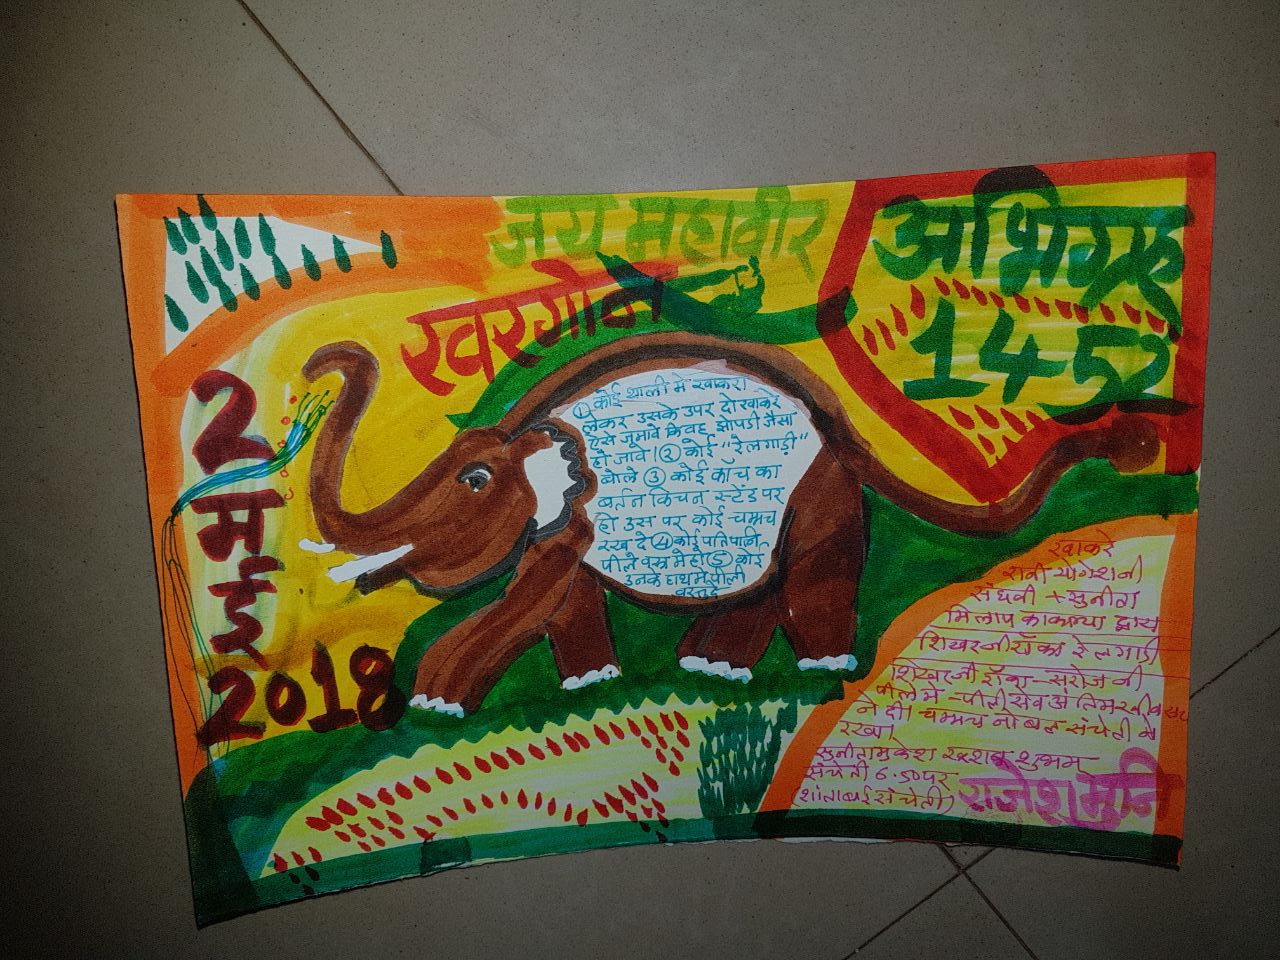 जय महावीर
खरगोन
अभिग्रह
14-52
2
मई
2018
① कोई थाली में खाकरा
लेकर उसके उपर दो खाकरे
ऐसे जमावे कि वह झोपडी जैसा
हो जावे। ② कोई "रेलगाड़ी"
बोले ③ कोई कांच का
बर्तन किचन स्टेंड पर
हो उस पर कोई चम्मच
रख दे ④ कोई पतिपत्नि
पीले वस्त्र में हो ⑤ कोई
उनके हाथ में पीली
वस्तु दे
खाकरे
संघवी + सुनीता
मिलाप द्वारा
रेलगाडी
शिखरजी सरोज जी
पीले में - पीली सेव
ने दी। चम्मच संचेती ने
रखा
सुनीता मुकेश शुभम
संचेती 6.50 पर
(शांताबाई संचेती)
राजेशमुनि